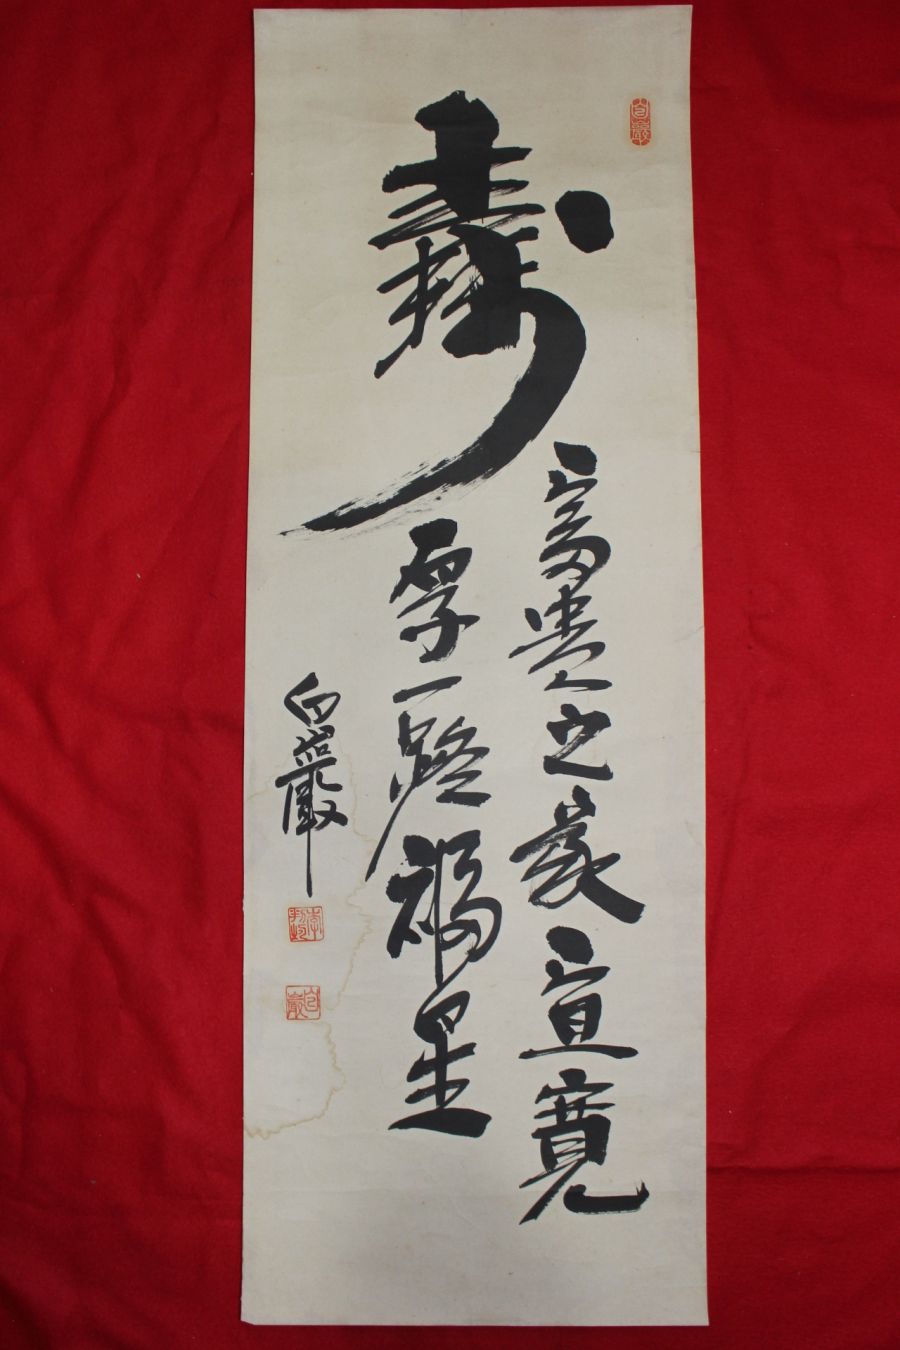 壽
富貴之家宜寬
厚一路福星
白巖